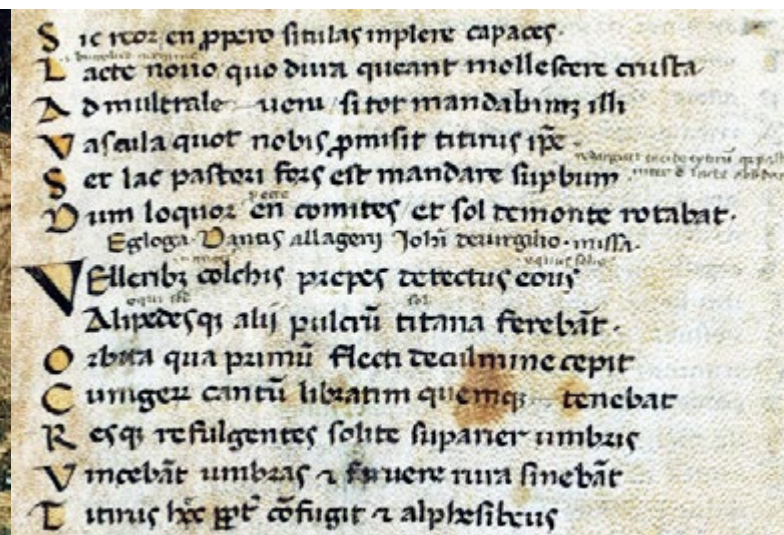 Sic reor en ꝓpero situlas implere capaces.
Lacte nouo quo dura queant mollescere crusta
Ad multrale ueni si tot mandabimꝰ illi
Vascula quot nobis ꝓmisit titirus ip̄e.
Set lac pastori fors est mandare supbum
Dum loquor en comites et sol demonte rotabat.
Egloga Dantis allagerij Johi deuirgilio missa.
Velleribꝫ colchis prepes detectus eous
Alipedesqꝫ alij pulcrū titana ferebāt.
Orbita qua primū flecti deculmine cepit
Curriger cantū libratim quemqꝫ tenebat
Resqꝫ refulgentes solite supārier umbris
Vincebāt umbras ⁊ feruere rura sinebāt
Titirus hec ꝓpt̄ cōfugit ⁊ alphesibeus